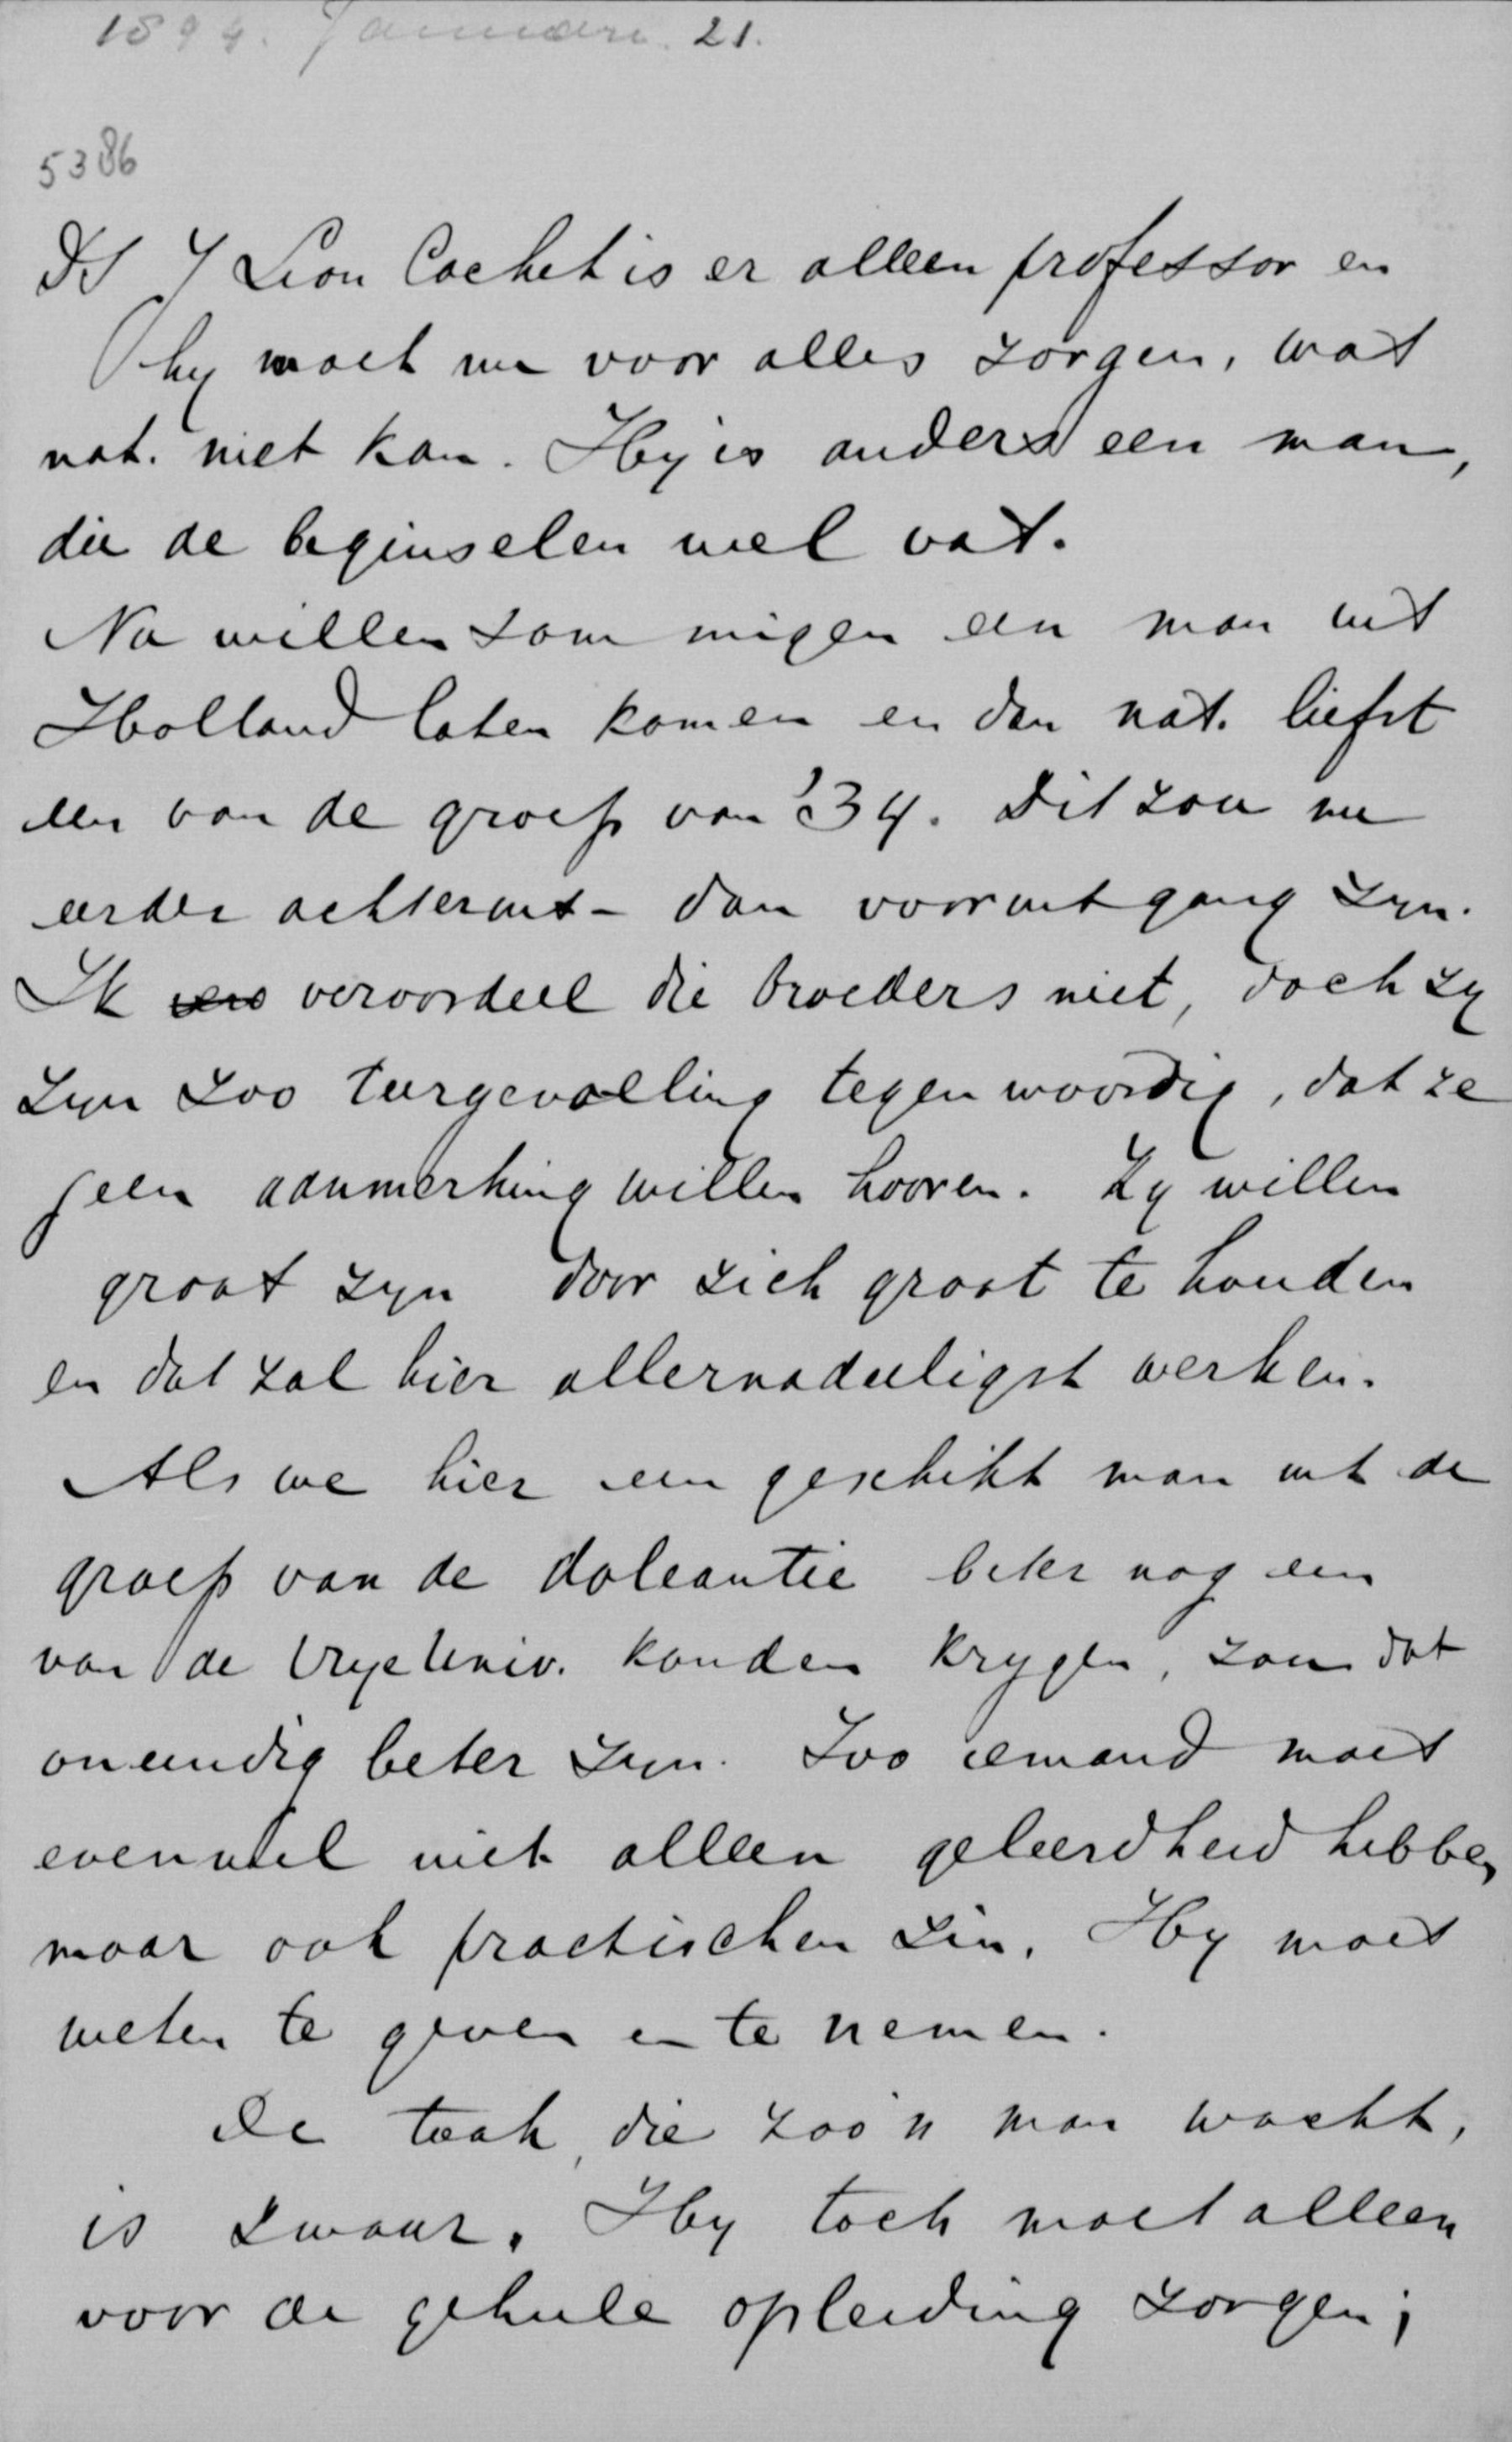 1894. Januari. 21.
5386
Ds J Lion Cachet is er alleen professor en
hy moet nu voor alles zorgen, wat
nat. niet kan. Hy is anders een man,
die de beginselen wel vat.
Nu willen sommigen een man uit
Holland laten komen en dan nat. liefst
een van de groep van '34. Dit zou nu
eerder achteruit- dan vooruitgang zyn.
Ik ver veroordeel die broeders niet, doch zy
zyn zoo teergevoelling tegenwoordig, dat ze
geen aanmerking willen hooren. Zy willen
groot zyn door zich groot te houden
en dat zal hier allernadeeligst werken.
Als we hier een geschikt man uit de
groep van de doleantie beter nog een
van de Vrye Univ. konden krygen, zou dat
oneindig beter zyn. Zoo iemand moet
evenwel niet alleen geleerdheid hebben,
maar ook practischen zin. Hy moet
weten te geven en te nemen.
De taak, die zoo'n man wacht,
is zwaar. Hy toch moet alleen
voor de geheele opleiding zorgen;